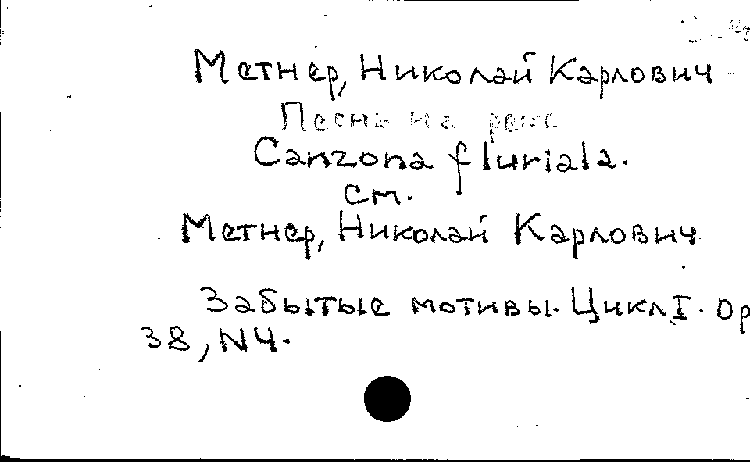 Метнер, Николай Карлович
Песнь на реке
Canzona fluriala.
см.
Метнер, Николай Карлович
Забытые мотивы. Цикл I. Op
38, N4.